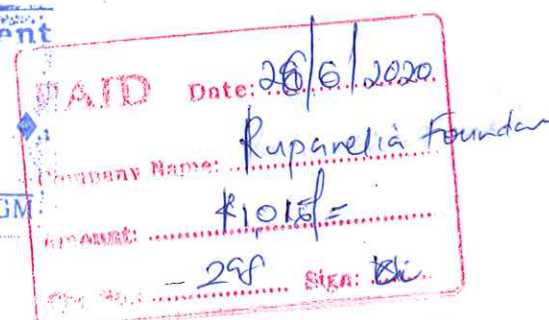 ent
PAID Date: 26/6/2020
Company Name: Ruparelia Foundan
GM
Amount:
298 Sign: